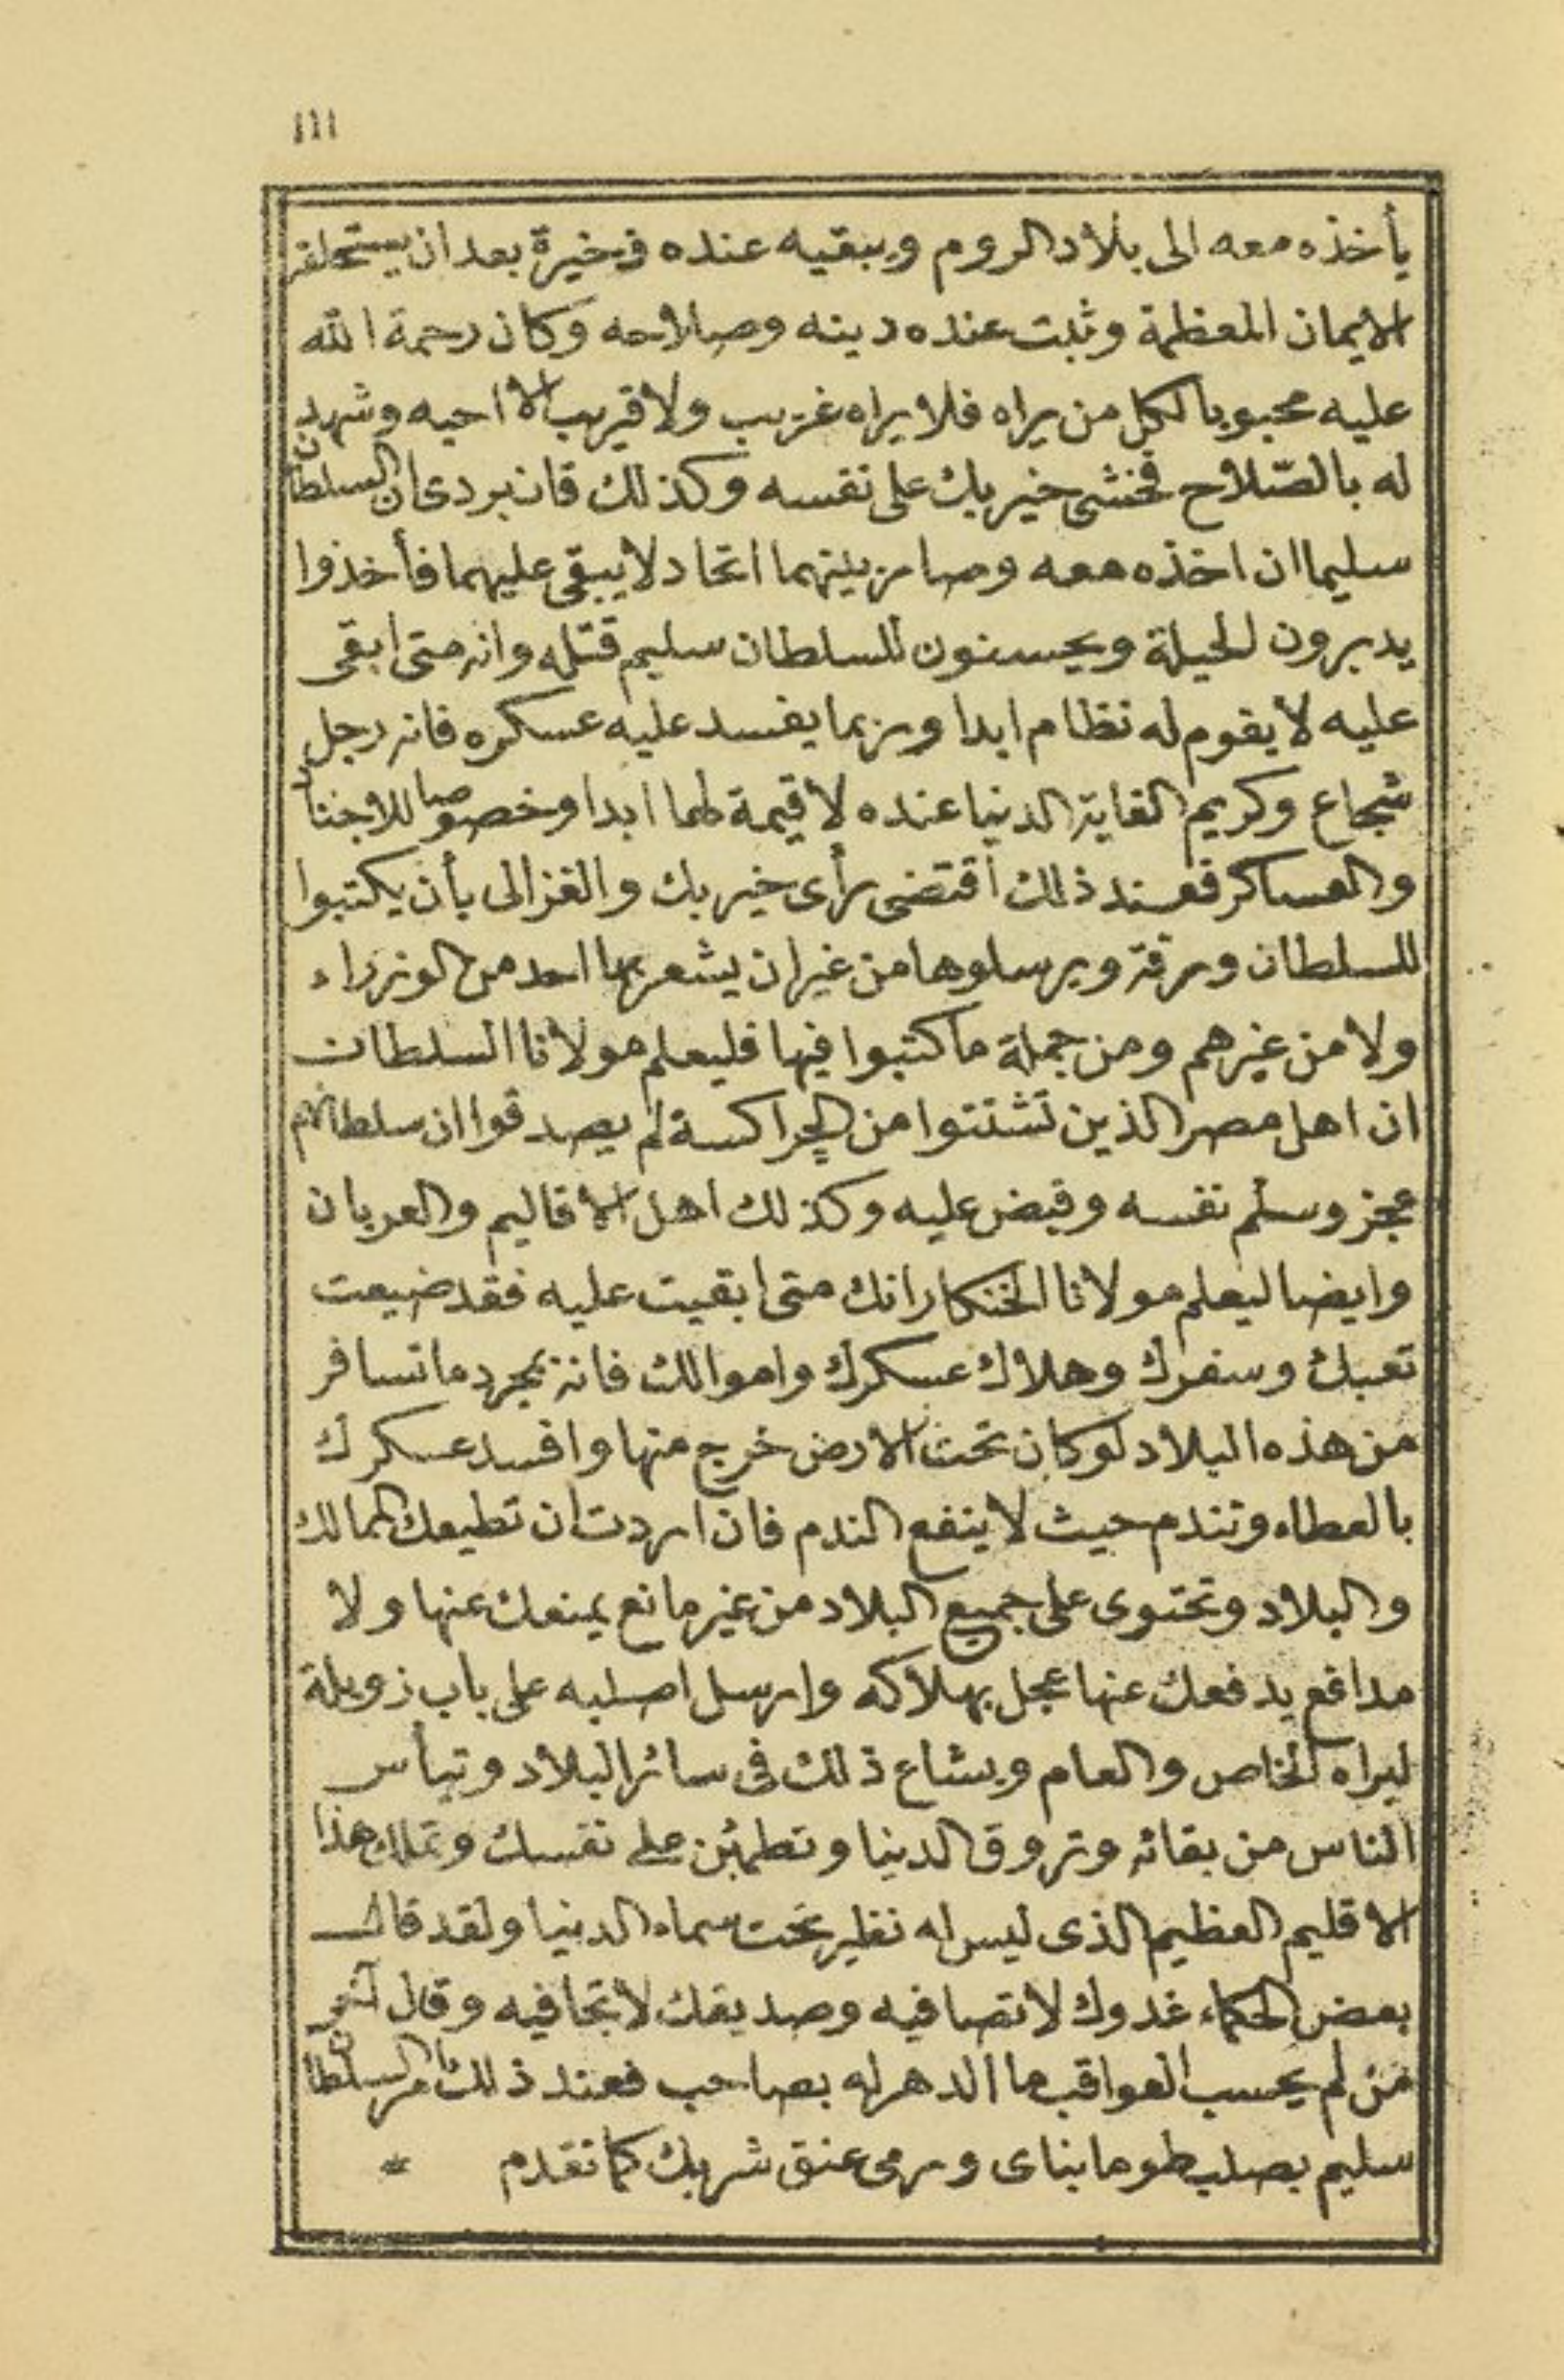 ١١١
يأخذه معه الى بلاد الروم ويبقيه عنده ذخيرة بعد ان يستحلفه
الايمان المعظمة وثبت عنده دينه وصلاحه وكان رحمة الله
عليه محبوبا لكل من يراه فلا يراه غريب ولا قريب الا احبه وشهد
له بالصّلاح فخشى خير بك على نفسه وكذلك قان بردى ان السلطان
سليما ان اخذه معه وصار بينهما اتحاد لا يبقى عليهما فأخذوا
يدبرون الحيلة ويحسنون للسلطان سليم قتله وانه متى ابقى
عليه لا يقوم له نظام ابدا وربما يفسد عليه عسكره فانه رجل
شجاع وكريم الغاية الدنيا عنده لا قيمة لها ابدا وخصوصا للاجناد
والعساكر فعند ذلك اقتضى رأى خير بك والغزالى بأن يكتبوا
للسلطان ورقة ويرسلوها من غير ان يشعر بها احد من الوزراء
ولا من غيرهم ومن جملة ما كتبوا فيها فليعلم مولانا السلطان
ان اهل مصر الذين تشتتوا من الچراكسة لم يصدقوا ان سلطانهم
عجز وسلم نفسه وقبض عليه وكذلك اهل الاقاليم والعربان
وايضا ليعلم مولانا الخنكار انك متى ابقيت عليه فقد ضيعت
تعبك وسفرك وهلاك عسكرك واموالك فانه بمجرد ما تسافر
من هذه البلاد لو كان تحت الارض خرج منها وافسد عسكرك
بالعطاء وتندم حيث لا ينفع الندم فان اردت ان تطيعك الممالك
والبلاد وتحتوى على جميع البلاد من غير مانع يمنعك عنها ولا
مدافع يدفعك عنها عجل بهلاكه وارسل اصلبه على باب زويلة
ليراه الخاص والعام ويشاع ذلك فى سائر البلاد وتيأس
الناس من بقائه وتروق الدنيا وتطمئن على نفسك وتملك هذا
الاقليم العظيم الذى ليس له نظير تحت سماء الدنيا ولقد قال
بعض الحكماء غدوك لا تصافيه وصديقك لا تجافيه وقال آخر
من لم يحسب العواقب ما الدهر له بصاحب فعند ذلك امر السلطان
سليم بصلب طومانباى ورمى عنق شربك كما تقدم *